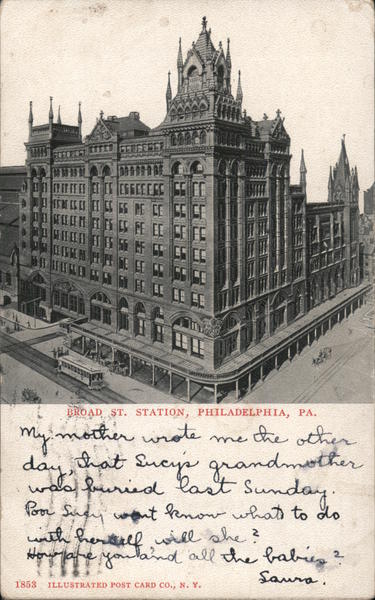 BROAD ST. STATION, PHILADELPHIA, PA.
My mother wrote me the other
day, that Lucy's grandmother
was buried last Sunday.
Poor Lucy wont know what to do
with herself will she?
How are you and all the babies?
Laura.
1853 ILLUSTRATED POST CARD CO., N. Y.